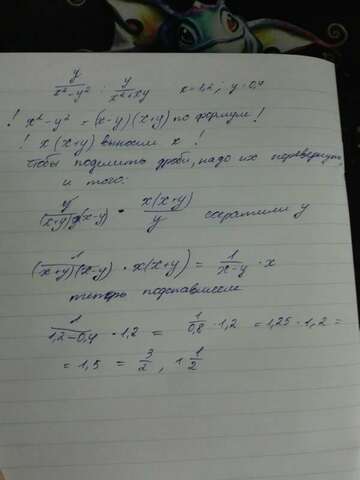 y/(x²-y²) : y/(x²+xy) x=1,2 ; y=0,4
! x²-y² = (x-y)(x+y) по формул !
! x(x+y) выносим x !
чтобы поделить дроби, надо их перевернуть
и того:
y/((x+y)(x-y)) · x(x+y)/y сократили y
1/((x+y)(x-y)) · x(x+y) = 1/(x-y) · x
теперь подставляем
1/(1,2-0,4) · 1,2 = 1/0,8 · 1,2 = 1,25 · 1,2 =
= 1,5 = 3/2 , 1 1/2